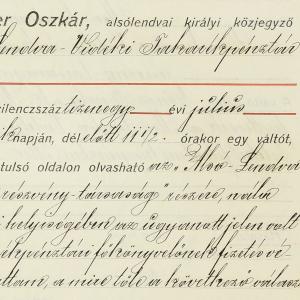 er Oszkár, alsólendvai királyi közjegyző
Lendva-Vidéki Takarékpénztár
cilenczszáz tizenegy évi július
napján, dél előtt 11½ órakor egy váltót,
tulsó oldalon olvasható az „Alsó-Lendva
részvény-társaság" részére, nála
helyiségében az ugyanott jelen volt
főkönyvelőnek fizetés vé-
a mire tőle a következő válasz